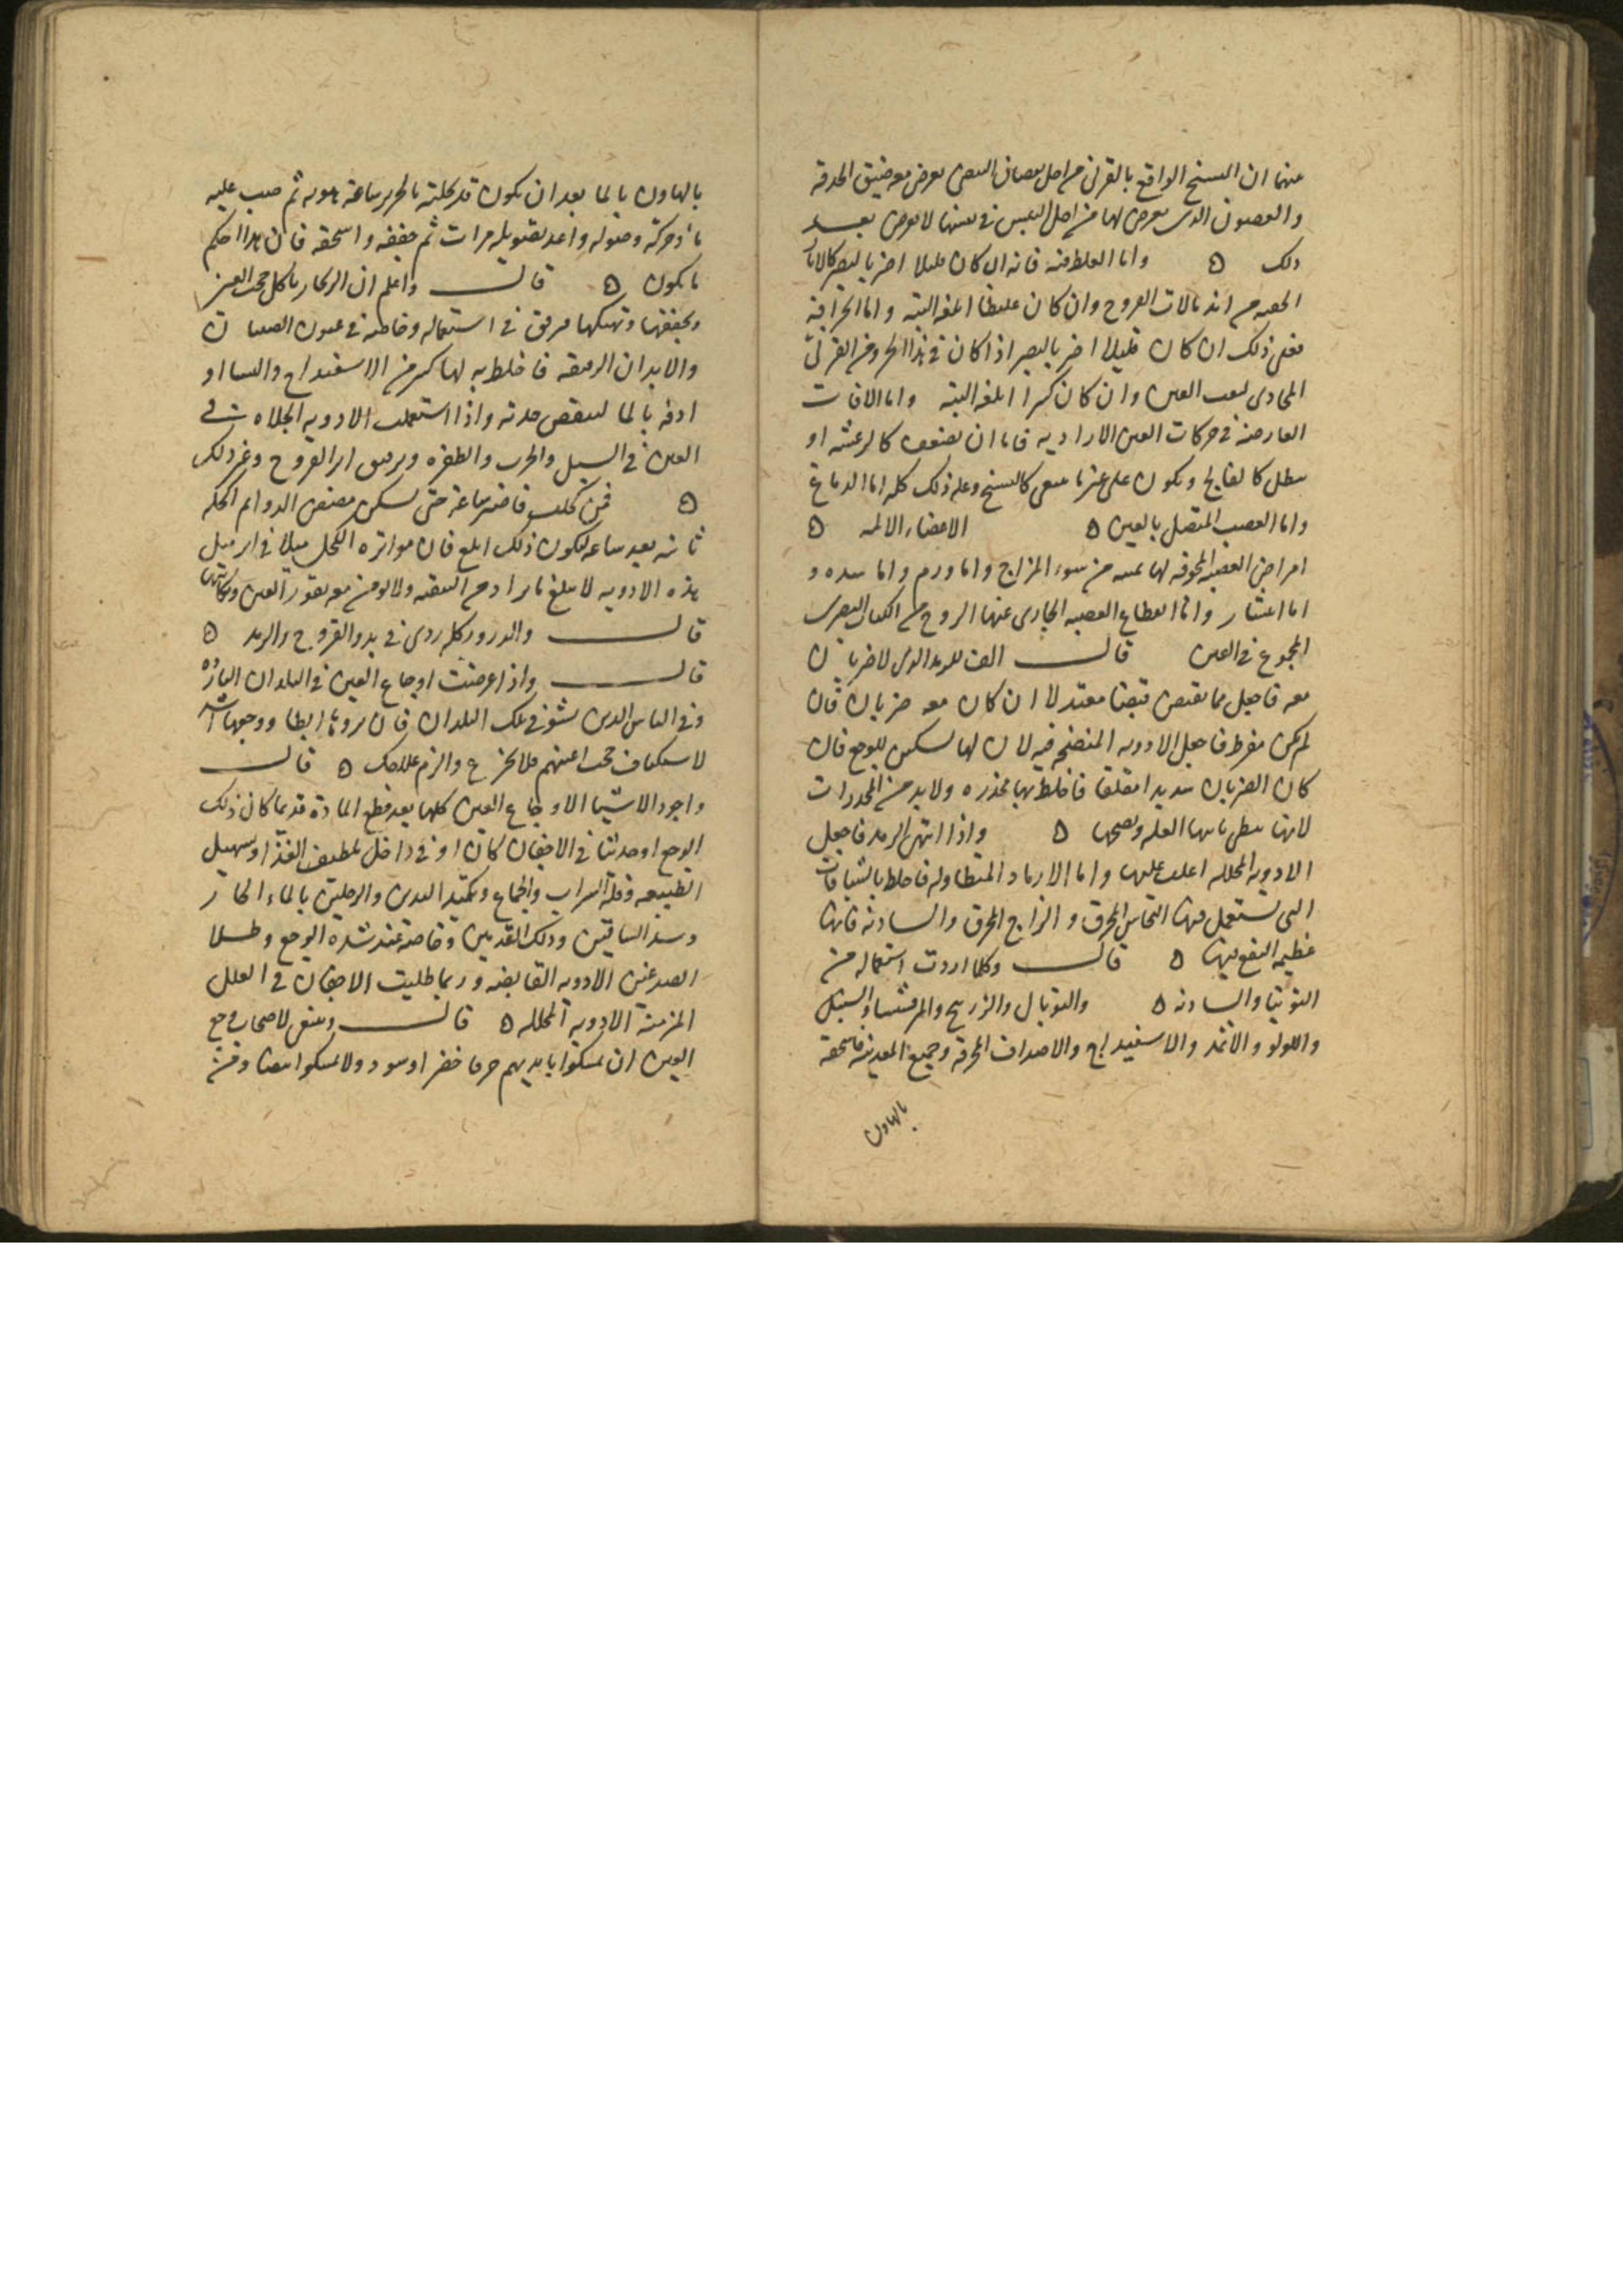 منها ان التشنج الواقع بالقرنى من اجل نقصان البيض يعرض معه ضيق الحدقة
والغضون الذى يعرض لها من اجل اليبس فى نفسها لا يعرض بعد
ذلك ه واما الغلظ منه فانه ان كان قليلا اضر بالبصر كالاثار
الخفيه من اندمالات القروح وان كان غليظا اتلفه البته واما الخراجه
فعلى ذلك ان كان قليلا اضر بالبصر اذا كان فى هذا الجزو من القرنى
المحاذى لثقب العين وان كان كبيرا اتلفه البته واما الافات
العارضه فى حركات العين الاراديه فاما ان تضعف كالرعشه او
تبطل كالفالج وتكون على غير ما ينبغى كالتشنج وعلة ذلك كله اما الدماغ
واما العصب المتصل بالعين ه الاعضاء الالمه ه
امراض العصبه المجوفه لها ثمنيه من سوء المزاج واما ورم واما سده و
اما انتشار واما انقطاع العصبه الجارى عنها الروح من الى البصرى
المجموع فى العين قال الف للرمد الذى لا ضربان
معه فاجعل مما يقبض قبضا معتدلا ان كان معه ضربان فان
لم يكن مفرط فاجعل الادويه المنضجه فيه لان لها تسكين للوجع فان
كان الضربان شديدا مقلقا فاخلط بها مخدره ولا بد من المخدرات
لانها العله ه واذا انتهى الرمد فاجعل
الادويه المحلله اغلب عليها واما الارماد المتطاوله فاخلط بالشيافات
التى تستعمل فيها النحاس المحرق والزاج المحرق والسادنه فانها
عظيمه النفع فيها ه قال وكلما اردت استعماله من
التوتيا والسادنه ه والتوبال والزرنيخ والمرقشيثا والسنبل
واللولو والاثمد والاسفيداج والاصداف المحرقه وجميع المعدنيه فاسحقه
بالهاون
بالهاون بالما بعد ان يكون قد نخلته بالحرير ساعة هويه ثم صب عليه
ما وحركه وصوله واعد تصويله مرات ثم جففه واسحقه فان هذا احكم
ما يكون ه قال واعلم ان الزنجار ياكل حجب العين
ويجففها وينهكها فرفق فى استعماله وخاصه فى عيون الصبيان
والابدان الرقيقه فاخلط به لها كثير من الاسفيداج والنشا او
ادفه بالما لينقص حدته واذا استعملت الادويه الجلاه فى
العين فى السبل والجرب والظفره وترقيق اثر القروح وغير ذلك
ه فمن كحلت فاصبر ساعة حتى يسكن مضض الدوا ثم اكحله
ثانيه بعد ساعه ليكون ذلك ابلغ فان مواتره الكحل ميلا فى اثر ميل
هذه الادويه لا يبلغ ما يراد من التنقيه ولا يومن معه تقور العين ونكايتها
قال والدرور كله ردى فى بدو القروح والرمد ه
قال واذا عرضت اوجاع العين فى البلدان البارده
وفى الناس الذين نشوا فى تلك البلدان فان بروها ابطا ووجعها اشد
لاستكثاف حجب اعينهم فلا تجزع والزم علاجك ه قال
واجود الاشيا لاوجاع العين كلها بعد قطع المادة قديما كان ذلك
الوجع او حديثا فى الاجفان كان او فى داخل تلطيف الغذا وتسهيل
الطبيعه وقلة الشراب والجماع وتكميد اليدين والرجلين بالماء الحار
وشد الساقين ودلك القدمين وخاصة عند شده الوجع وطلا
الصدغين الادويه القابضه وربما طليت الاجفان فى العلل
المزمنه الادويه المحلله ه قال وينبغى لاصحاب وجع
العين ان يمسكوا بايديهم خرقا خضر او سود ولا يمسكوا بيضا ومن